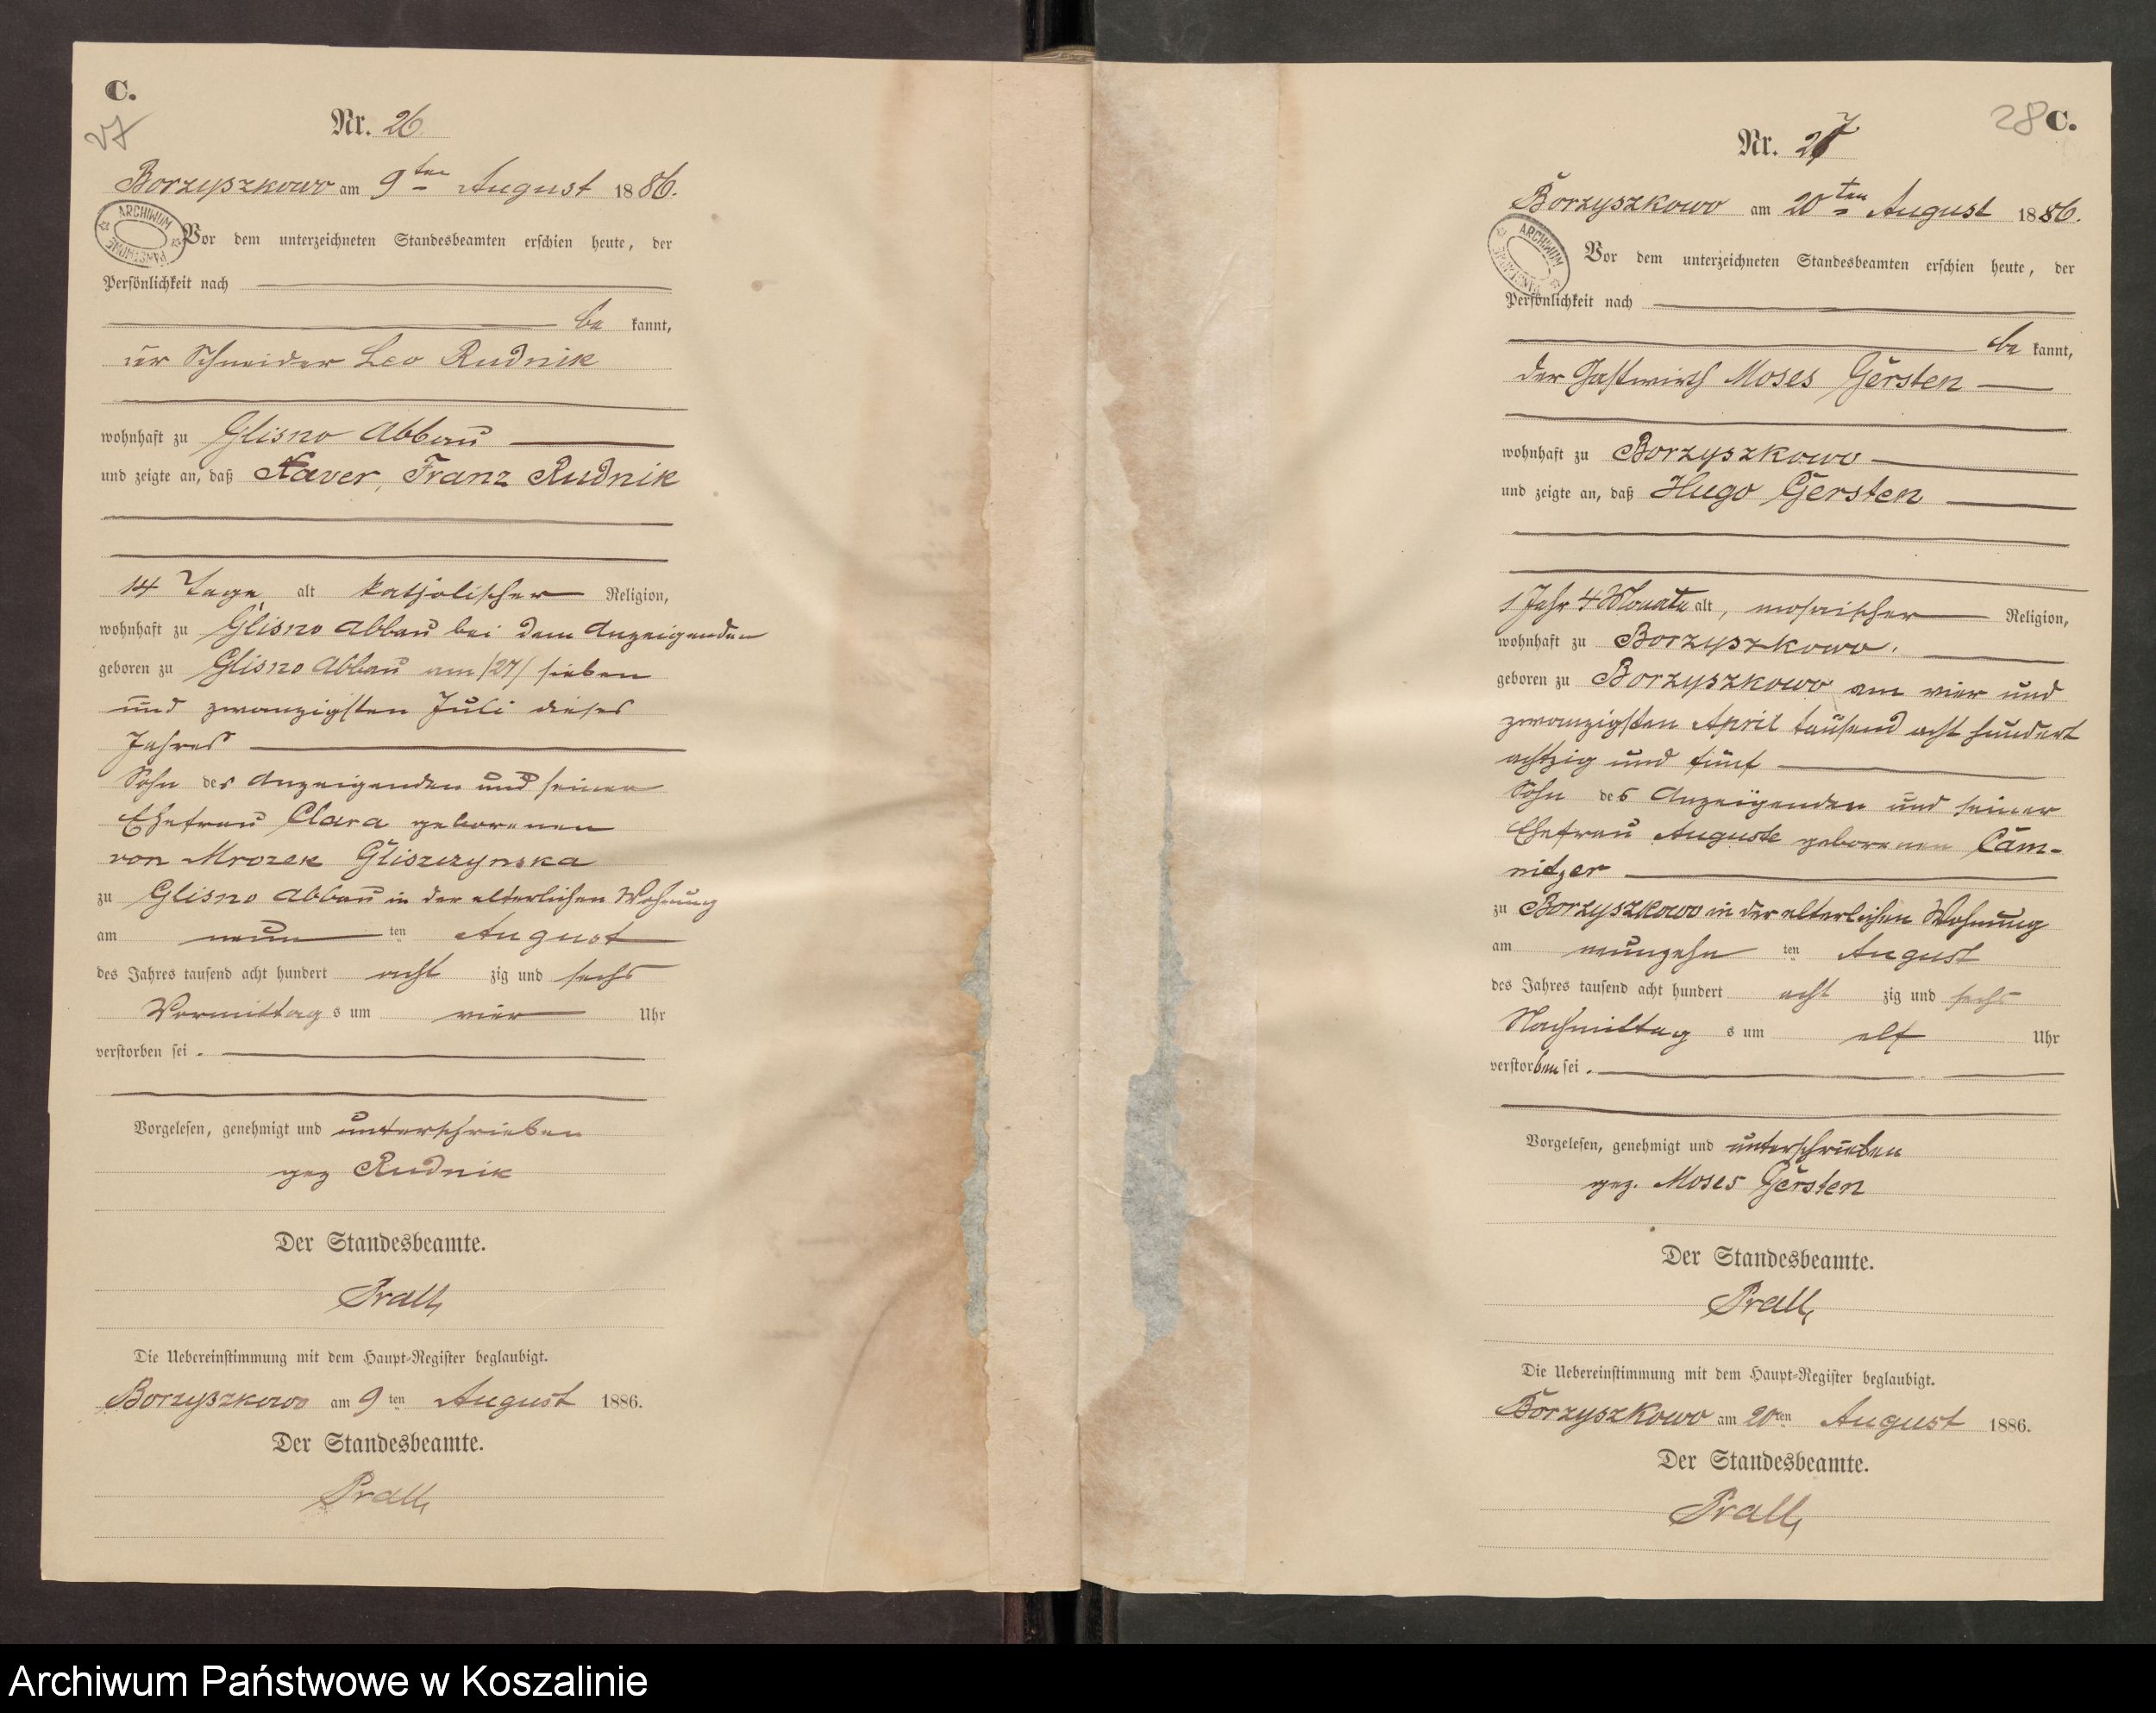 C.
27
Nr. 26.
Borzyszkowo am 9ten August 1886.
ARCHIWUM PAŃSTWOWE
Vor dem unterzeichneten Standesbeamten erschien heute, der
Persönlichkeit nach
be kannt,
der Schneider Leo Rudnik
wohnhaft zu Glisno Abbau
und zeigte an, daß Xaver, Franz Rudnik
14 Tage alt katholischer Religion,
wohnhaft zu Glisno Abbau bei dem Anzeigenden
geboren zu Glisno Abbau am /27/ sieben
und zwanzigsten Juli dieses
Jahres
Sohn des Anzeigenden und seiner
Ehefrau Clara geborenen
von Mrozek Gliszczynska
zu Glisno Abbau in der elterlichen Wohnung
am neun ten August
des Jahres tausend acht hundert acht zig und sechs
Vormittag s um vier Uhr
verstorben sei.
Vorgelesen, genehmigt und unterschrieben
gez Rudnik
Der Standesbeamte.
Prall
Die Uebereinstimmung mit dem Haupt-Register beglaubigt.
Borzyszkowo am 9 ten August 1886.
Der Standesbeamte.
Prall
28 C.
Nr. 27
Borzyszkowo am 20ten August 1886.
ARCHIWUM PAŃSTWOWE
Vor dem unterzeichneten Standesbeamten erschien heute, der
Persönlichkeit nach
be kannt,
der Gastwirth Moses Gersten
wohnhaft zu Borzyszkowo
und zeigte an, daß Hugo Gersten
1 Jahr 4 Monate alt, mosaischer Religion,
wohnhaft zu Borzyszkowo.
geboren zu Borzyszkowo am vier und
zwanzigsten April tausend acht hundert
achtzig und fünf
Sohn des Anzeigenden und seiner
Ehefrau Auguste geborenen Cam-
nitzer
zu Borzyszkowo in der elterlichen Wohnung
am neunzehn ten August
des Jahres tausend acht hundert acht zig und sechs
Nachmittag s um elf Uhr
verstorben sei.
Vorgelesen, genehmigt und unterschrieben
gez. Moses Gersten
Der Standesbeamte.
Prall
Die Uebereinstimmung mit dem Haupt-Register beglaubigt.
Borzyszkowo am 20ten August 1886.
Der Standesbeamte.
Prall
Archiwum Państwowe w Koszalinie